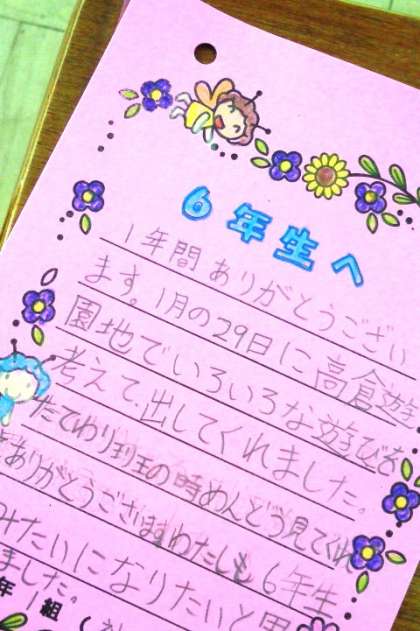 6年生へ
1年間ありがとうござい
ます。1月の29日に高倉遊
園地でいろいろな遊びを
考えて、出してくれました。
たてわり班の時めんどう見てくれ
ありがとうございますわたしも6年生
みたいになりたいと思
ました。
年1組(